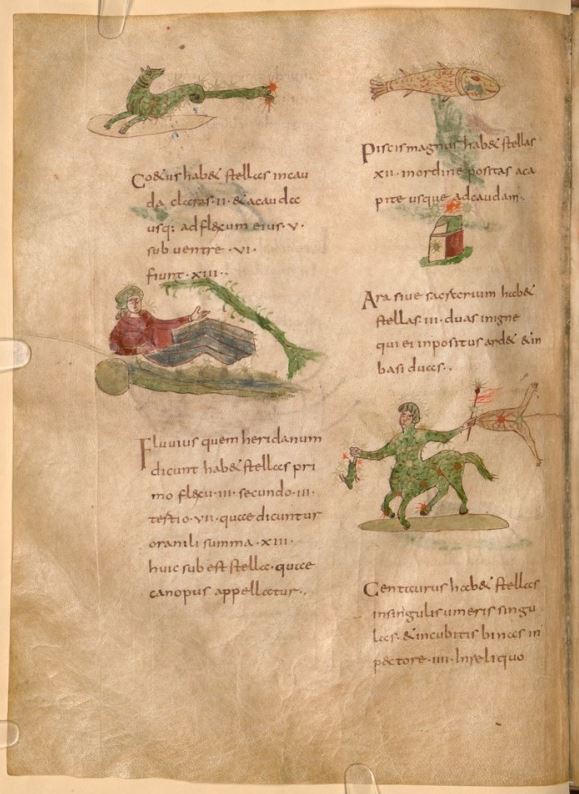 Co&us hab& stellas incau
da claras·II·& acauda
usq: adflexum eius·V·
sub ventre·VI·
fiunt·XIII··
Fluvius quem heridanum
dicunt hab& stellas pri
mo flexu·III·secundo·III·
tertio·VII·quae dicuntur
oranili summa·XIII·
huic sub est stella·quae
canopus appellatur·,
Piscis magnus hab& stellas
XII·inordine positas aca
pite usque adcaudam·
Ara sive hab&
stellas·III·duas inigne
qui ei inpositus ard& &in
basi duas·,
Centaurus hab& stellas
insingulis umeris singu
las·&incubitis binas in
pectore·IIII·Inreliquo